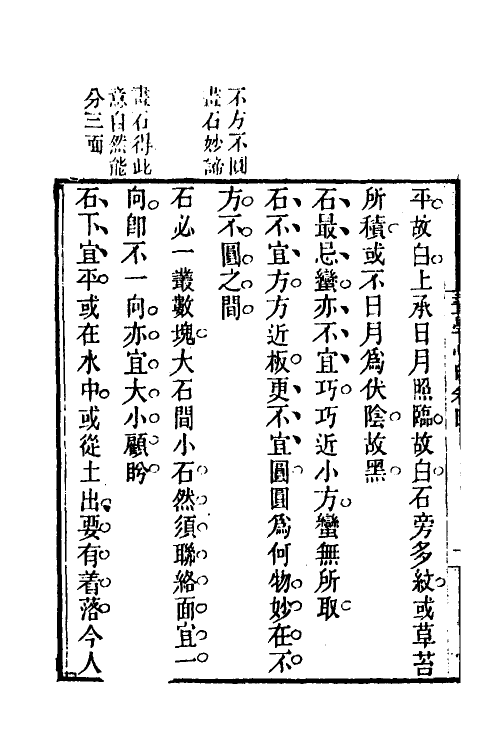 不方不圓
畫石妙諦
畫石得此
意自然能
分三面
平故白上承日月照臨故白石旁多紋或草苔
所積或不日月爲伏陰故黑
石最忌蠻亦不宜巧巧近小方蠻無所取
石不宜方方近板更不宜圓圓爲何物妙在不
方不圓之間
石必一叢數塊大石間小石然須聯絡面宜一
向卽不一向亦宜大小顧盼
石下宜平或在水中或從土出要有着落今人